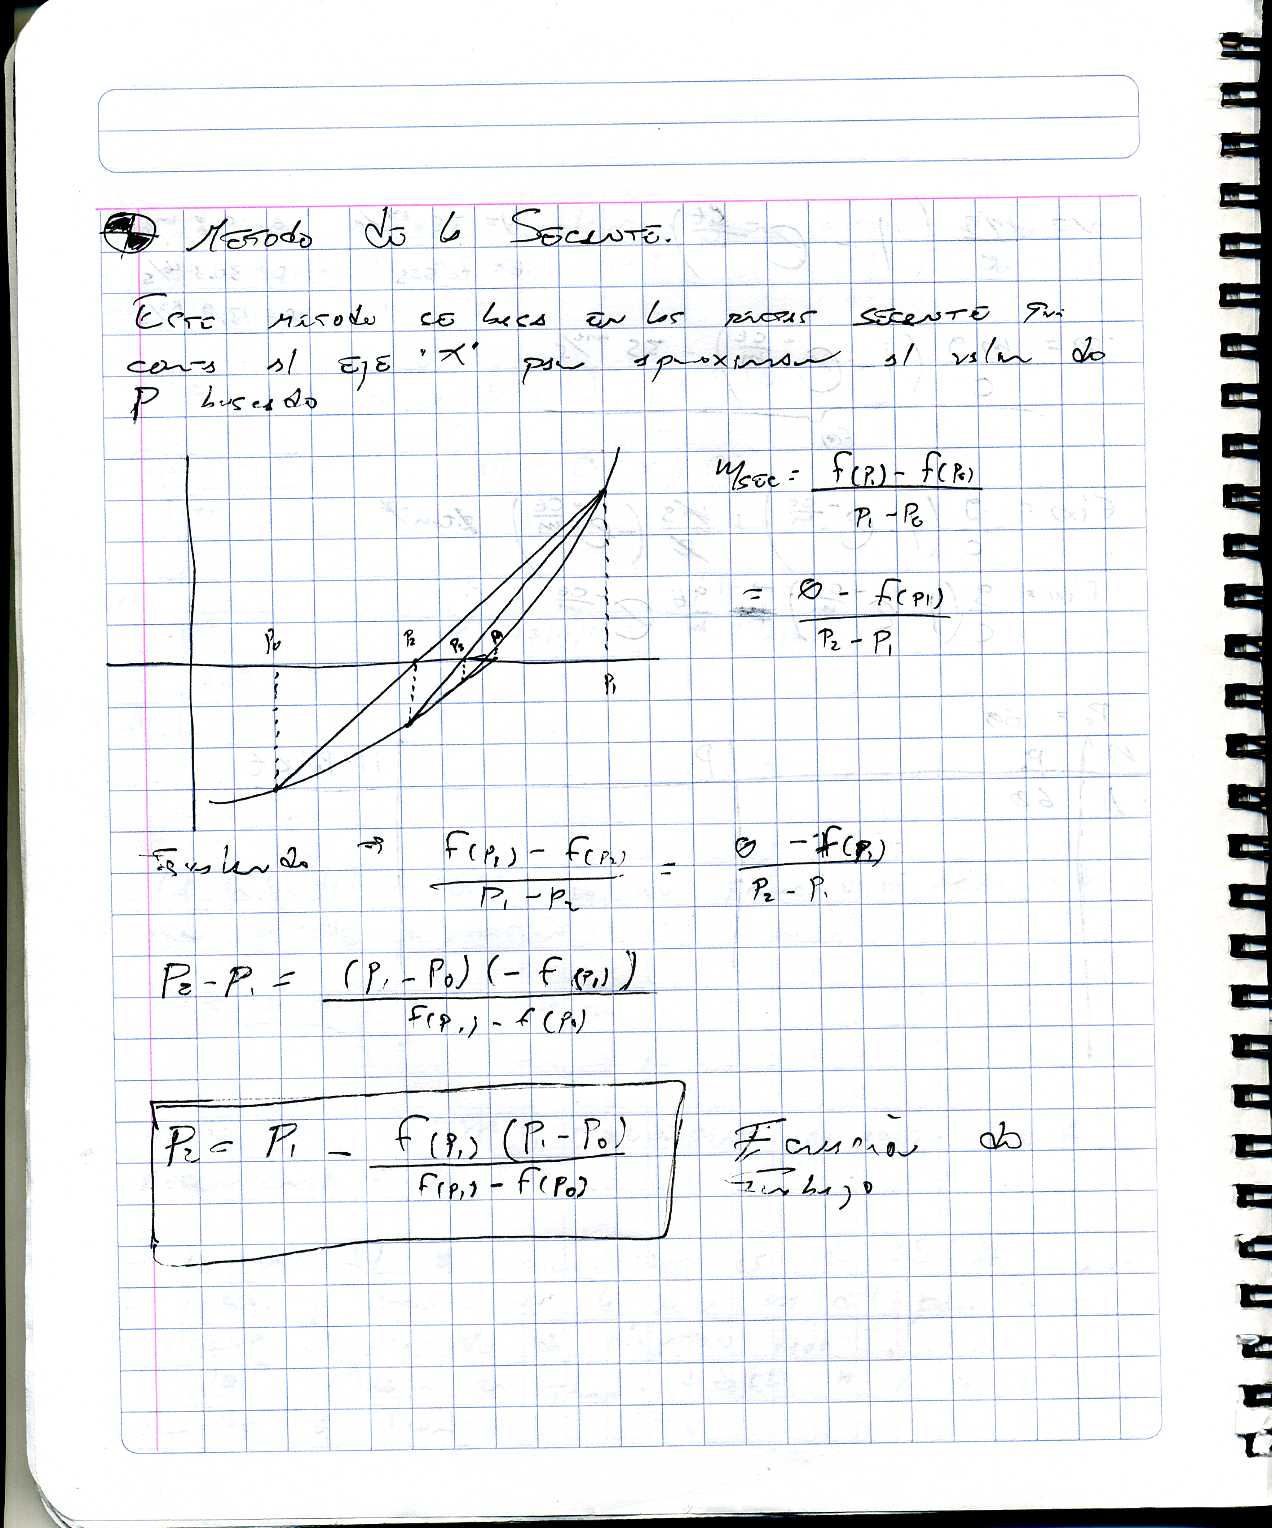 Metodo de la Secante.
Este metodo se basa en las rectas secante que
corta al EJE "X" para aproximar al valor de
P buscado
m sec = f(P1) - f(P0) / P1 - P0
= 0 - f(P1) / P2 - P1
P0 P2 P3 P4
P1
Igualando ⇒ f(P1) - f(P2) / P1 - P2 = 0 - f(P1) / P2 - P1
P2 - P1 = (P1 - P0) (- f(P1)) / f(P1) - f(P0)
P2 = P1 - f(P1) (P1 - P0) / f(P1) - f(P0) Ecuación de
trabajo